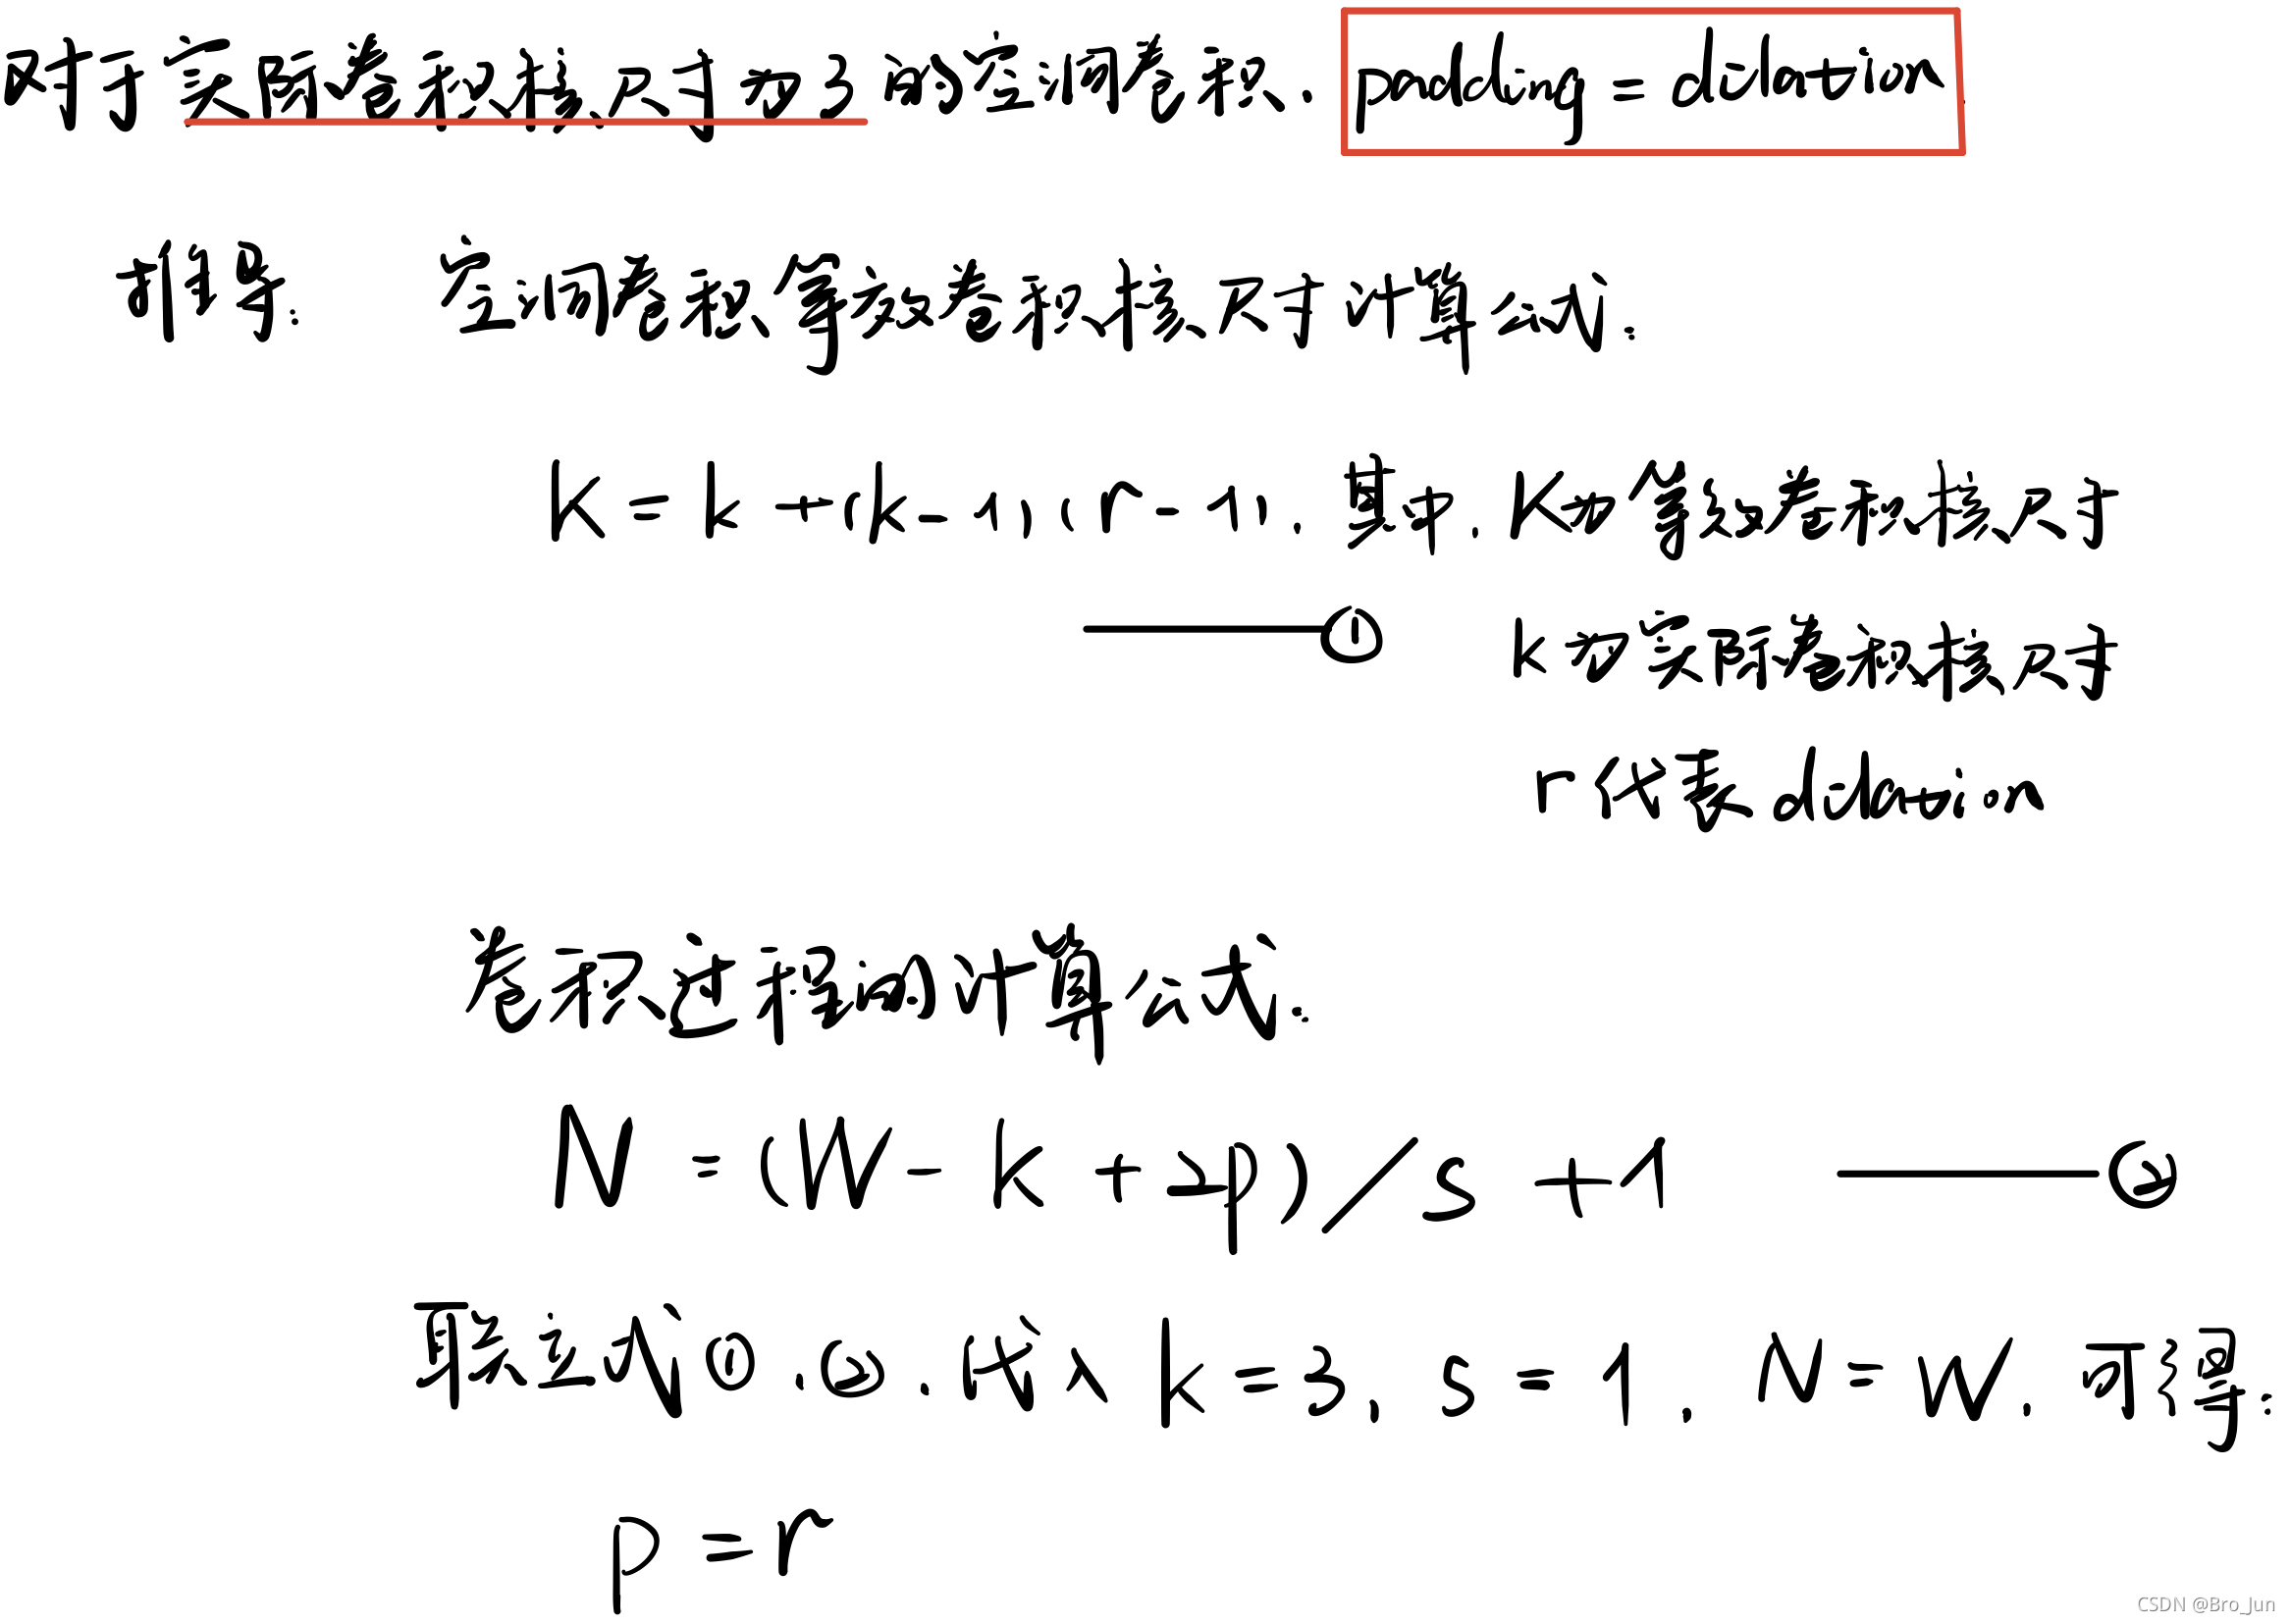 对于实际卷积核尺寸为3的空洞卷积,padding=dilation.
推导: 空洞卷积等效卷积核尺寸计算公式:
K=k+(k-1)(r-1),其中,K为等效卷积核尺寸
①
k为实际卷积核尺寸
r代表dilation
卷积过程的计算公式:
N=(W-k+2p)/s+1 ②
联立式①、②,代入k=3,s=1,N=W,可得:
p=r
CSDN @Bro_Jun